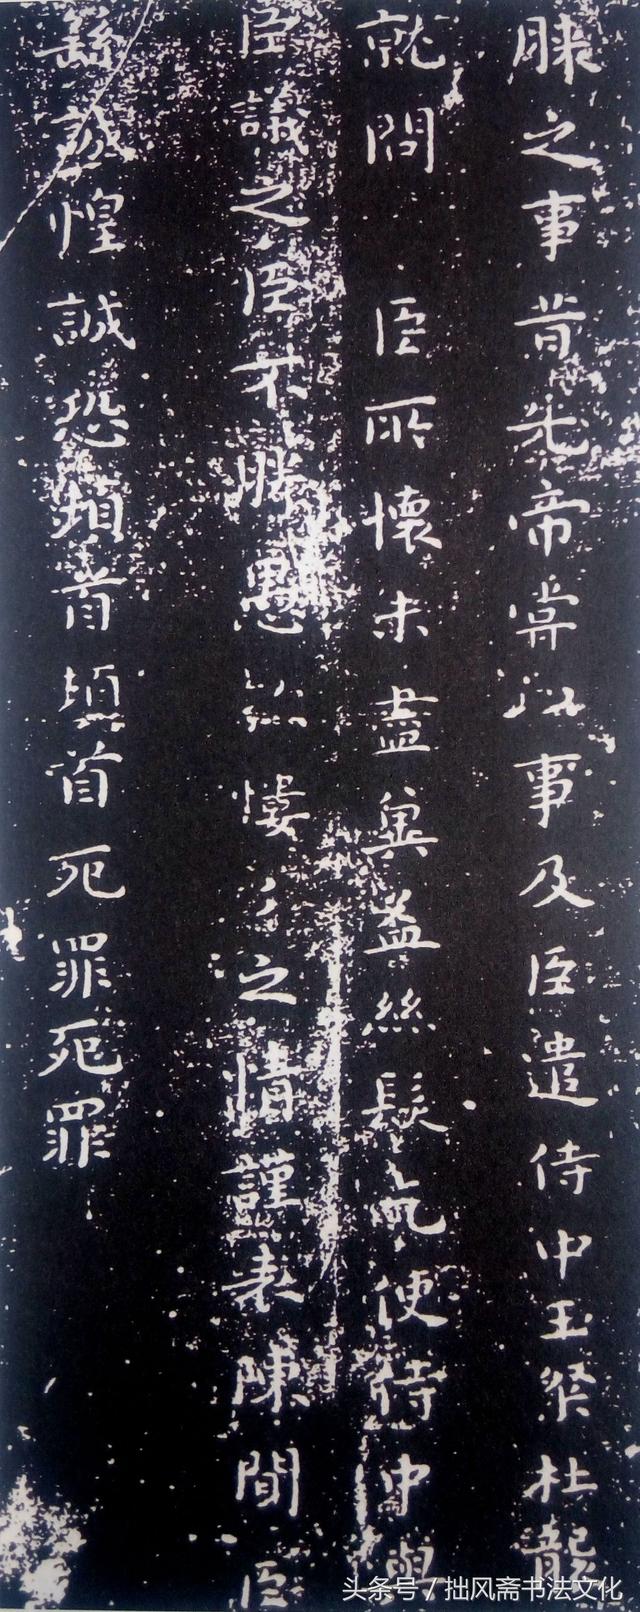 之事昔先帝常以事及臣遣侍中王粲杜襲
就問臣所懷未盡奚益絲髮乞使侍中與
臣議之臣不勝愚款慺々之情謹表陳聞臣
繇誠惶誠恐頓首頓首死罪死罪
头条号/拙风斋书法文化